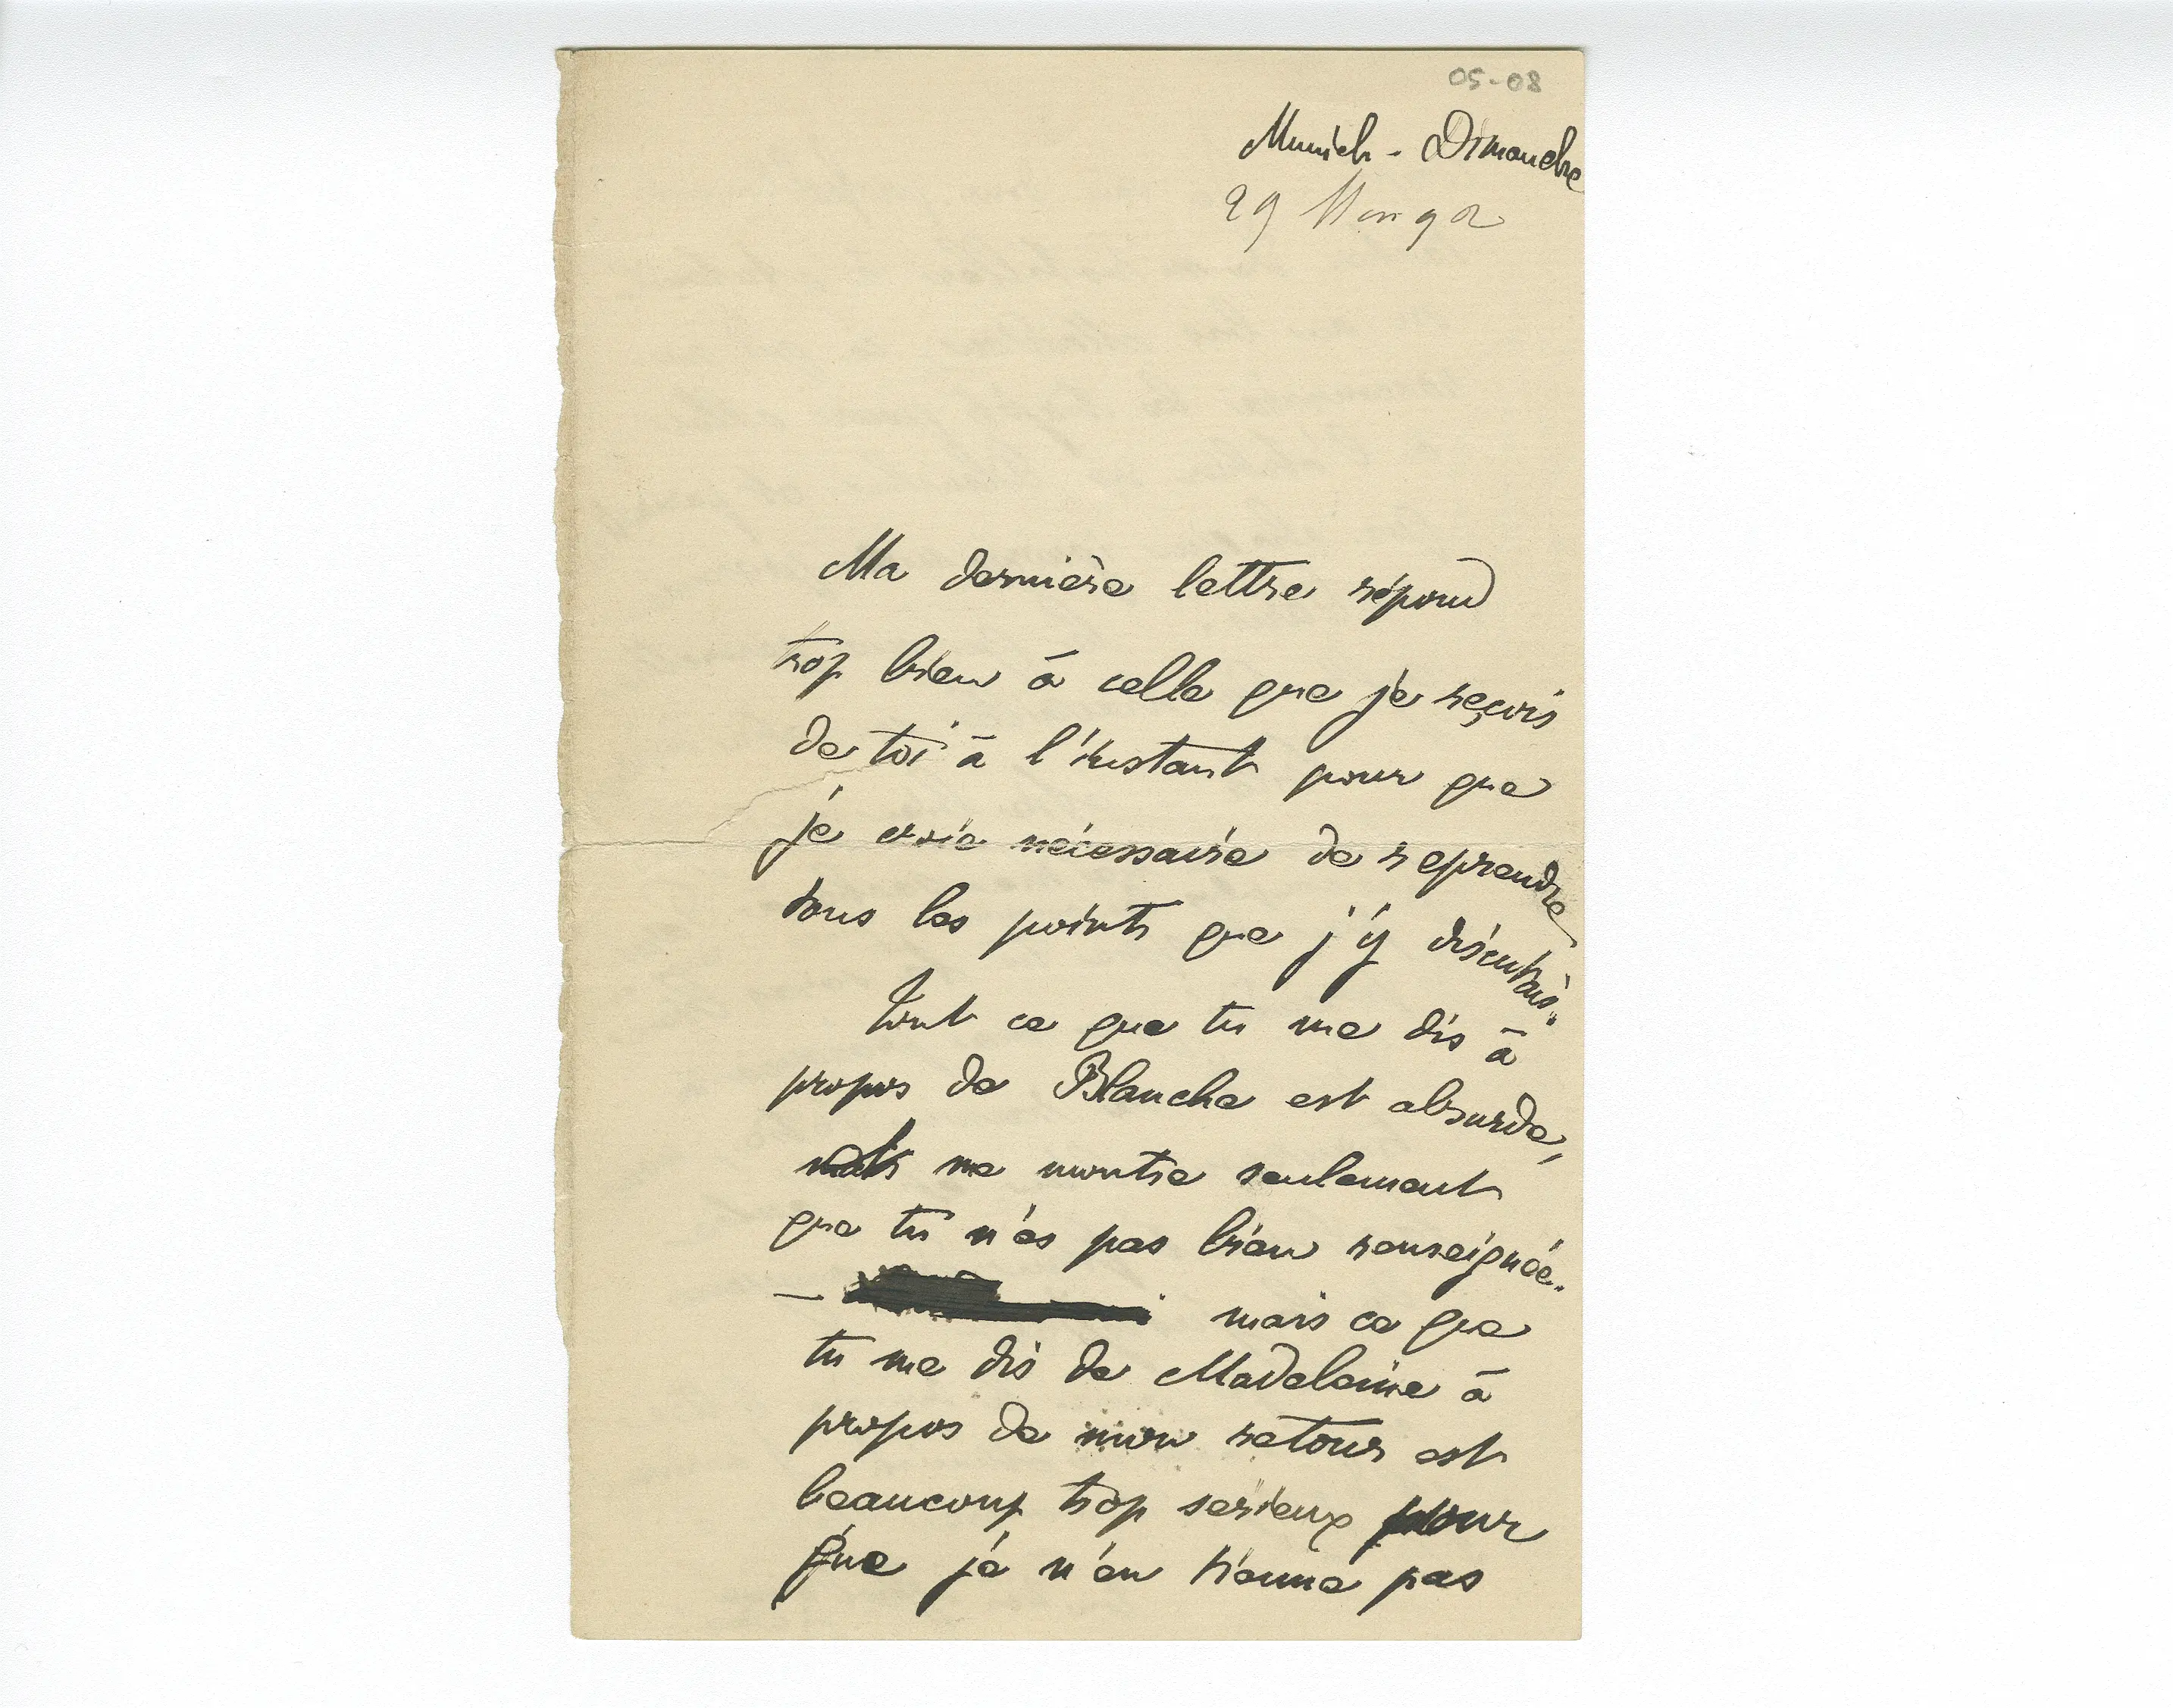 05-08
Munich - Dimanche
29 Mai 92
Ma dernière lettre répond
trop bien à celle que je reçois
de toi à l'instant pour que
je croie nécessaire de reprendre
tous les points que j'y discutais.
Tout ce que tu me dis à
propos de Blanche est absurde,
mais me montre seulement
que tu n'es pas bien renseignée.
— mais ce que
tu me dis de Madeleine à
propos de mon retour est
beaucoup trop serieux pour
que je n'en tienne pas